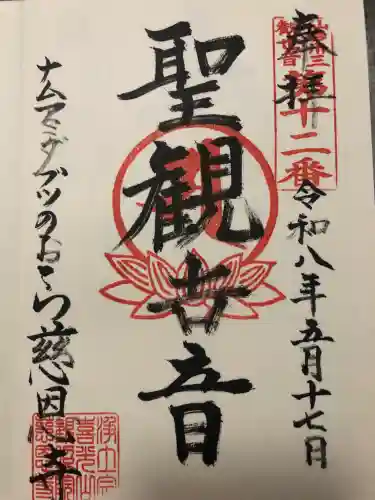 奉拝
第十二番
令和八年五月十七日
聖観世音
ナムアミダブツのおてら 慈恩寺